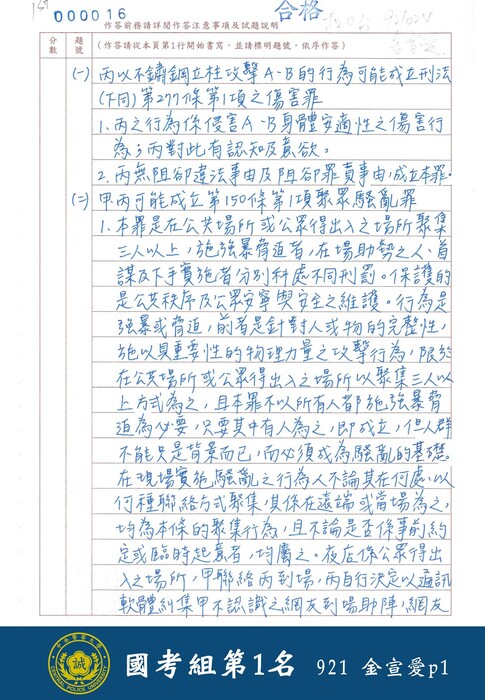 000016
合格
作答前務請詳閱作答注意事項及試題說明
分數
題號
(作答請從本頁第1行開始書寫，並請標明題號，依序作答)
(一) 丙以不鏽鋼立柱攻擊A、B的行為可能成立刑法
(下同)第277條第1項之傷害罪
1、丙之行為係侵害A、B身體安適性之傷害行
為；丙對此有認知及意欲。
2、丙無阻卻違法事由及阻卻罪責事由，成立本罪。
(二) 甲丙可能成立第150條第1項聚眾騷亂罪
1、本罪是在公共場所或公眾得出入之場所聚集
三人以上，施強暴脅迫者，在場助勢之人、首
謀及下手實施者分別科處不同刑罰。保護的
是公共秩序及公眾安寧與安全之維護。行為是
強暴或脅迫，前者是針對人或物的完整性，
施以具重要性的物理力量之攻擊行為，限於
在公共場所或公眾得出入之場所以聚集三人以
上方式為之，且本罪不以所有人都施強暴脅
迫為必要，只要其中有人為之，即成立，但人群
不能只是背景而已，而必須成為騷亂的基礎。
在現場實施騷亂之行為人不論其在何處、以
何種聯絡方式聚集，其係在遠端或當場為之，
均為本條的聚集行為，且不論是否係事前約
定或臨時起意者，均屬之。夜店係公眾得出
入之場所，甲聯絡丙到場，丙自行決定以通訊
軟體糾集甲不認識之網友到場助陣，網友
誠
CENTRAL POLICE UNIVERSITY
國考組第1名 921 金宣愛p1